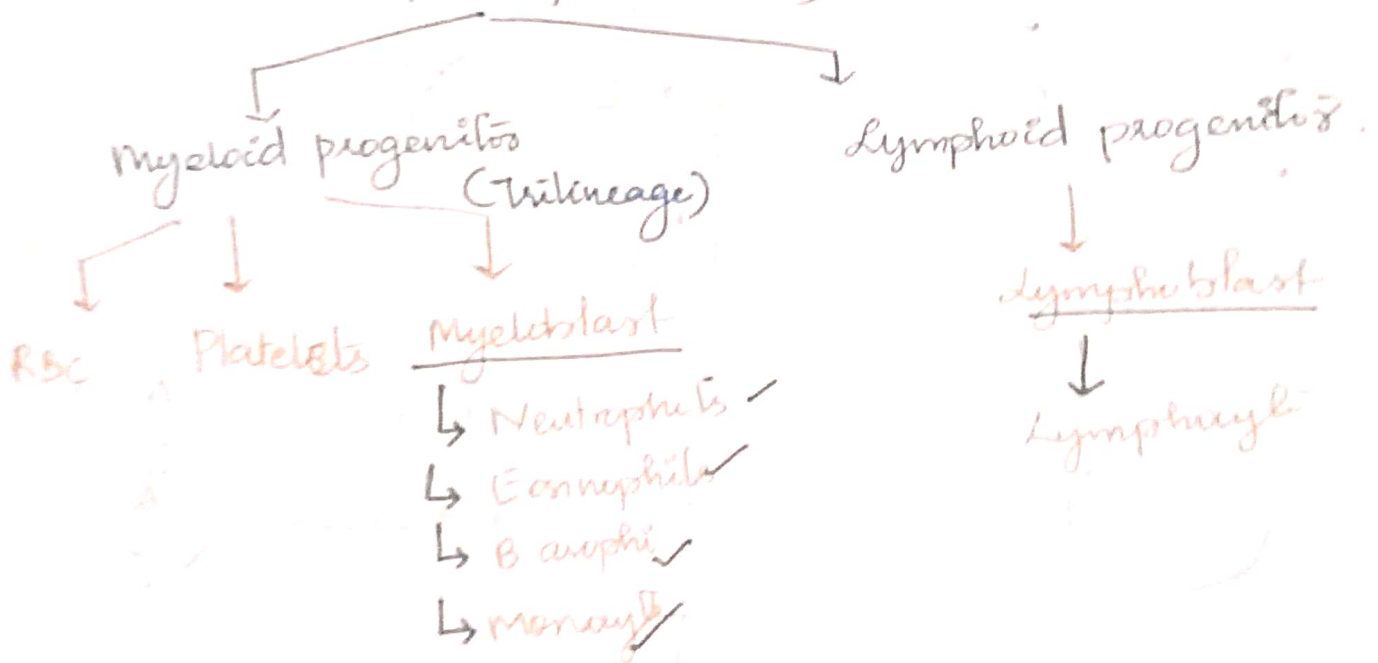 Myeloid progenitor
(Trilineage)
Lymphoid progenitor.
RBC
Platelets
Myeloblast
Lymphoblast
Neutrophils
Eosinophils
Basophi
Monocyte
Lymphocyte